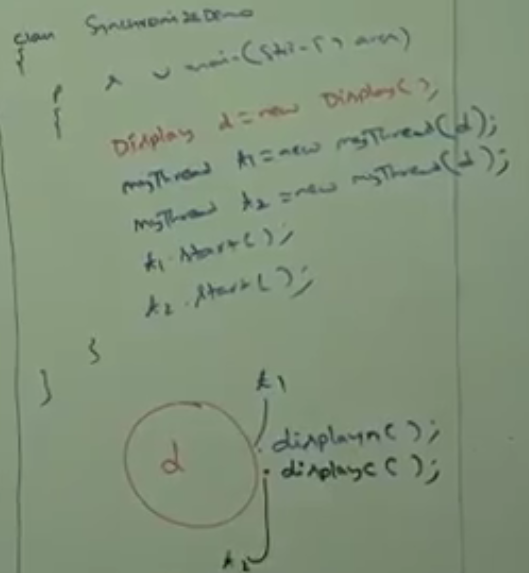 class SynchronizeDemo
{
p s v main(String[] args)
{
Display d = new Display();
myThread t1 = new myThread(d);
myThread t2 = new myThread(d);
t1.start();
t2.start();
}
}
t1
d
displayn();
displayc();
t2